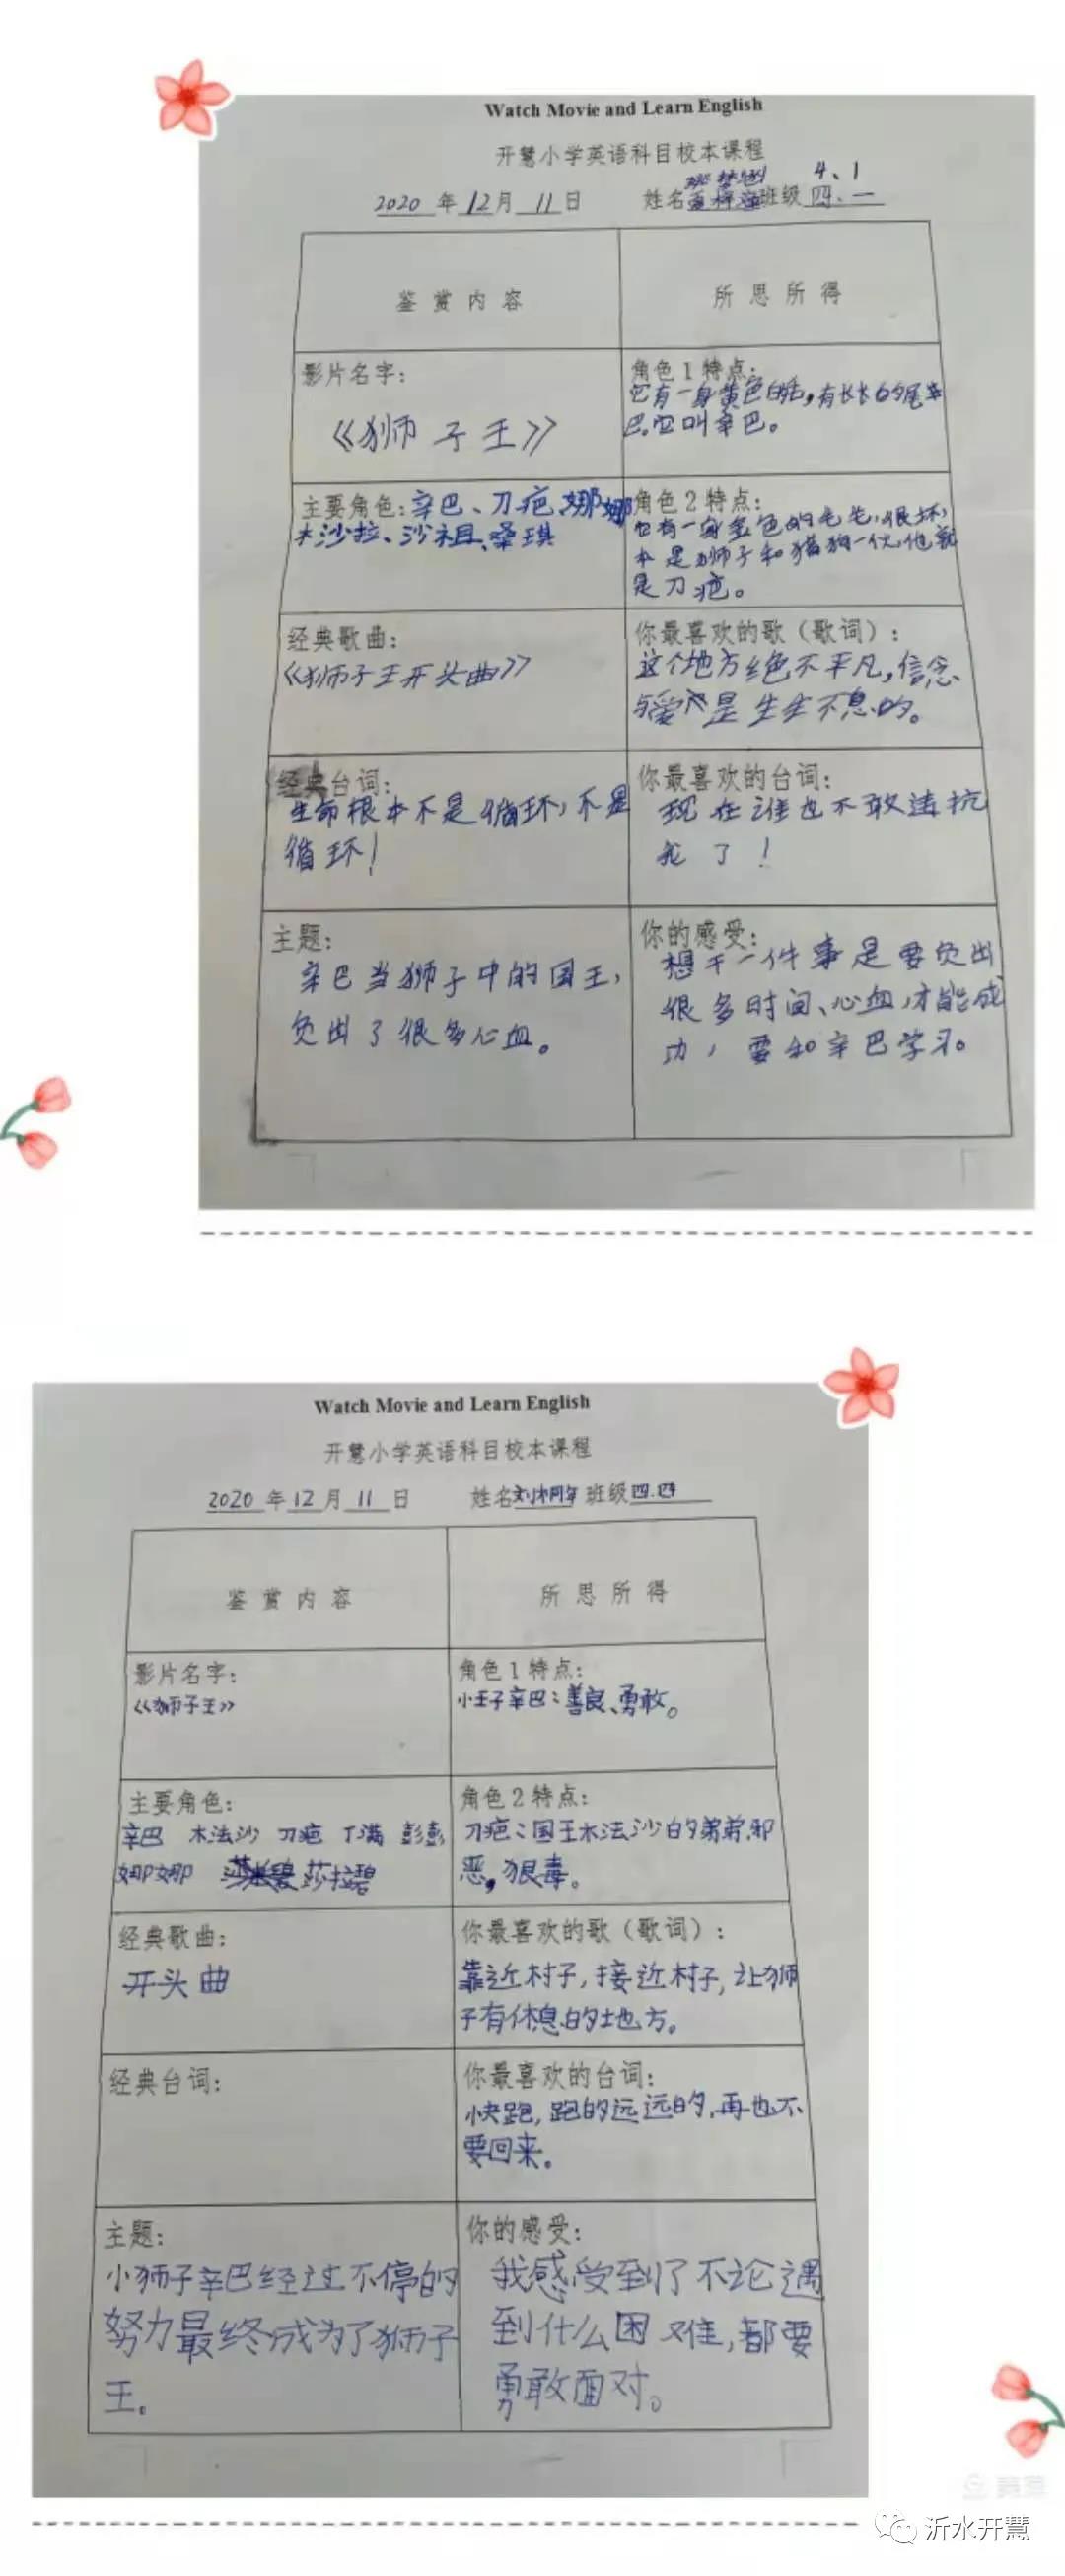 Watch Movie and Learn English
开慧小学英语科目校本课程
2020 年 12 月 11 日 姓名 班级 四、一
4、1
鉴赏内容
所思所得
影片名字：
《狮子王》
角色1特点：
它有一身黄色的毛，有长长的尾
巴。它叫辛巴。
主要角色：辛巴、刀疤、娜娜
木沙拉、沙祖、桑琪
角色2特点：
它有一身金色的毛，很坏，
本是狮子和猎狗一伙，他就
是刀疤。
经典歌曲：
《狮子王开头曲》
你最喜欢的歌（歌词）：
这个地方绝不平凡，信念
与爱是生生不息的。
经典台词：
生命根本不是循环，不是
循环！
你最喜欢的台词：
现在谁也不敢违抗
我了！
主题：
辛巴当狮子中的国王，
负出了很多心血。
你的感受：
想干一件事是要负出
很多时间、心血，才能成
功，要和辛巴学习。
Watch Movie and Learn English
开慧小学英语科目校本课程
2020 年 12 月 11 日 姓名 班级 四.四
鉴赏内容
所思所得
影片名字：
《狮子王》
角色1特点：
小王子辛巴：善良、勇敢。
主要角色：
辛巴 木法沙 刀疤 丁满 彭彭
娜娜 莎拉碧
角色2特点：
刀疤：国王木法沙的弟弟，邪
恶，狠毒。
经典歌曲：
开头曲
你最喜欢的歌（歌词）：
靠近村子，接近村子，让狮
子有休息的地方。
经典台词：
你最喜欢的台词：
快跑，跑的远远的，再也不
要回来。
主题：
小狮子辛巴经过不停的
努力最终成为了狮子
王。
你的感受：
我感受到了不论遇
到什么困难，都要
勇敢面对。
沂水开慧